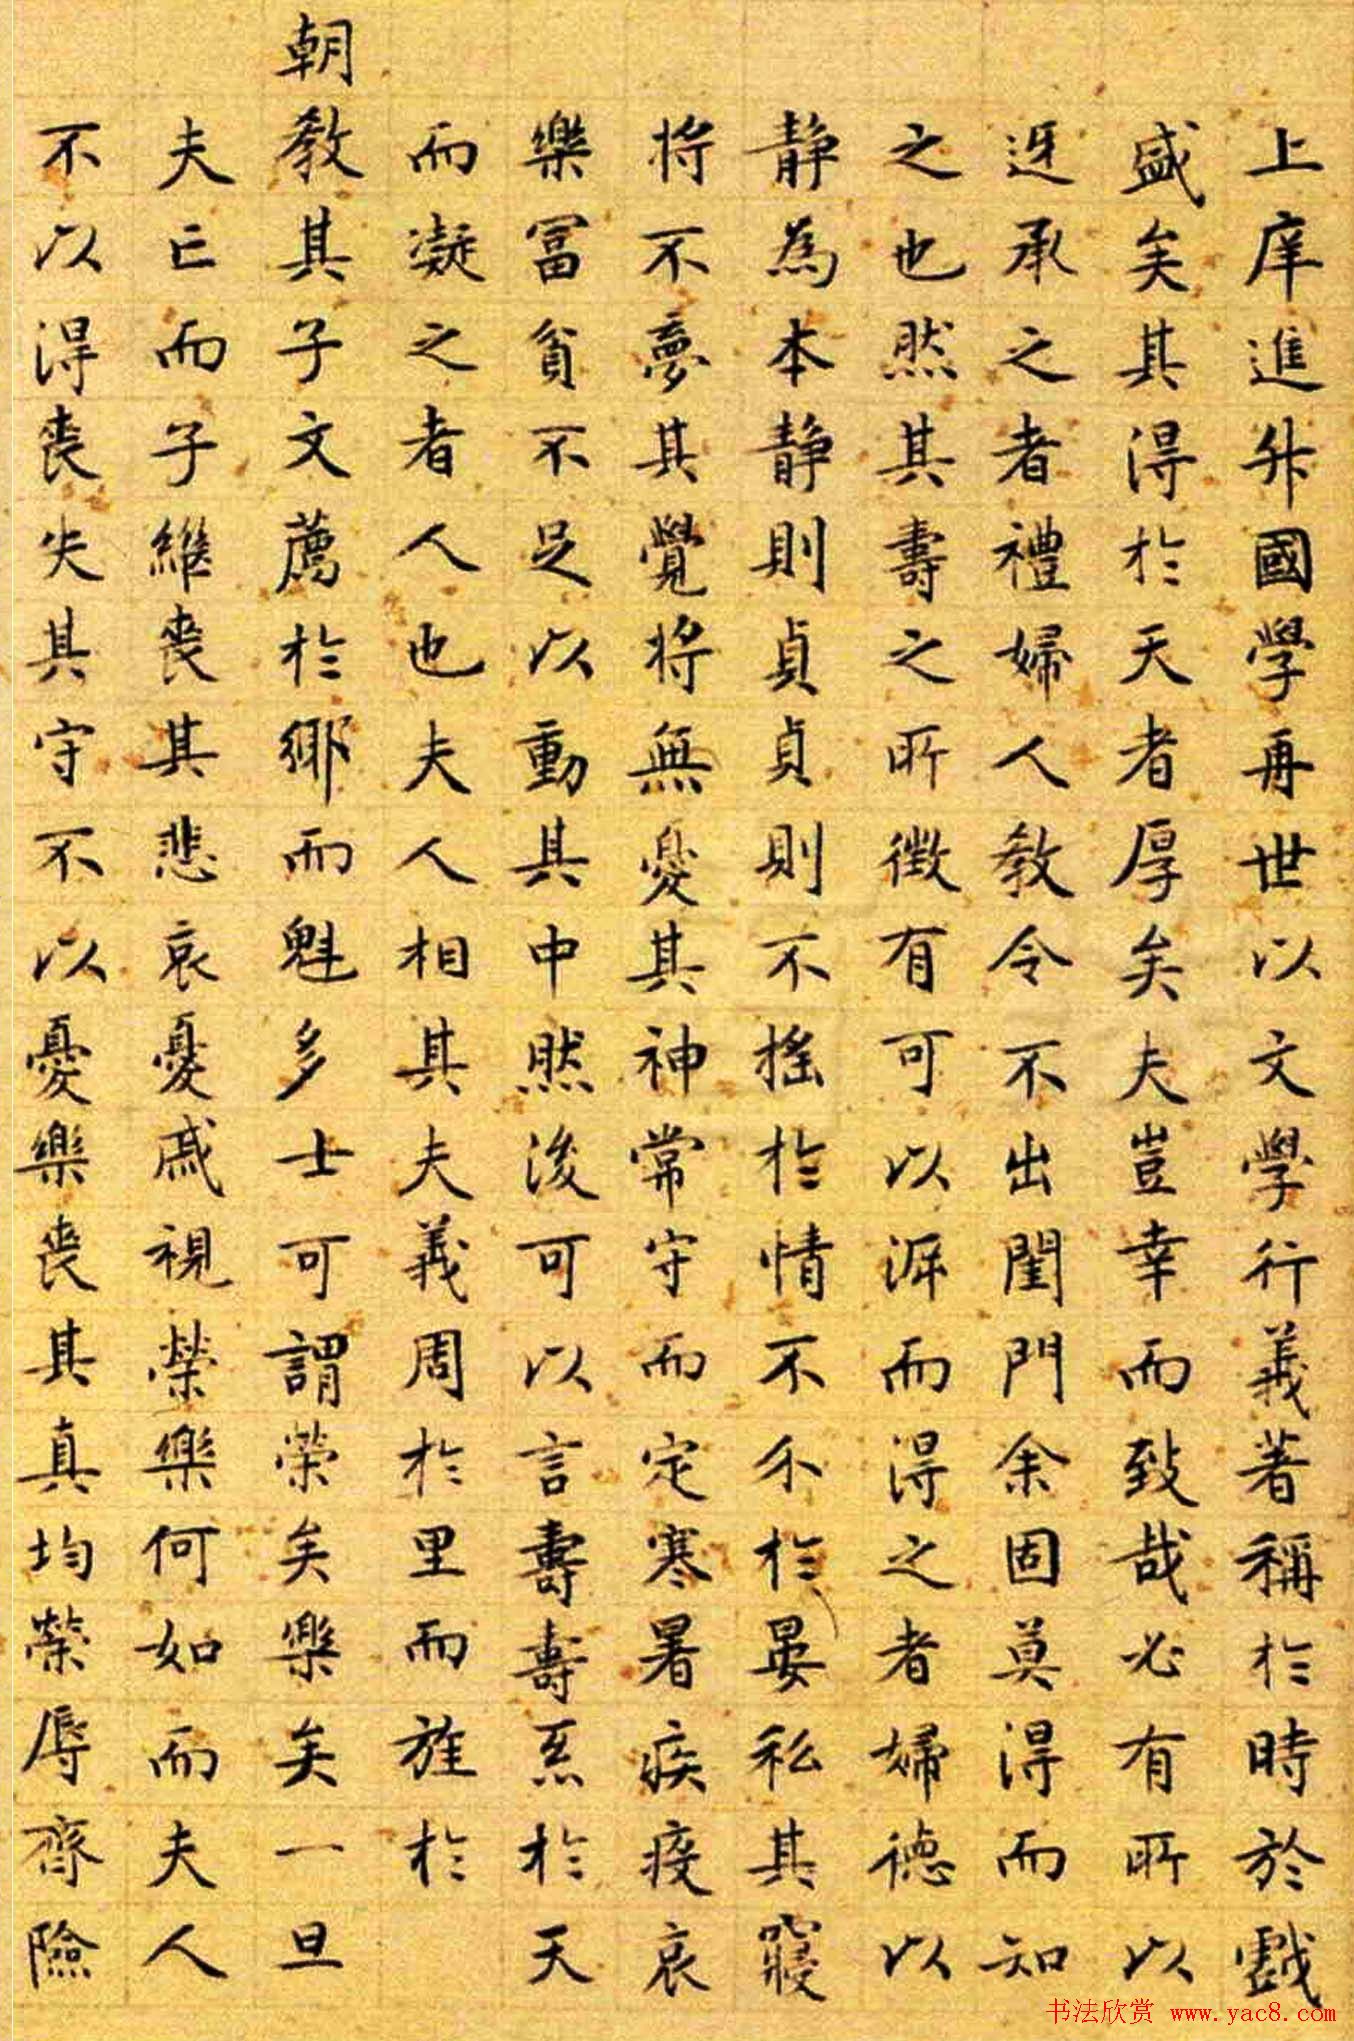 上庠進升國學再世以文學行義著稱於時於戲
盛矣其得於天者厚矣夫豈幸而致哉必有所以
迓承之者禮婦人教令不出閨門余固莫得而知
之也然其壽之所徵有可以泝而得之者婦德以
静為本静則貞貞則不搖於情不介於晏私其寢
将不夢其覺将無憂其神常守而定寒暑疾疫哀
樂富貧不足以動其中然後可以言壽壽系於天
而凝之者人也夫人相其夫義周於里而旌於
朝教其子文薦於鄉而魁多士可謂榮矣樂矣一旦
夫亡而子繼喪其悲哀憂戚視榮樂何如而夫人
不以得喪失其守不以憂樂喪其真均榮辱齊險
书法欣赏 www.yac8.com